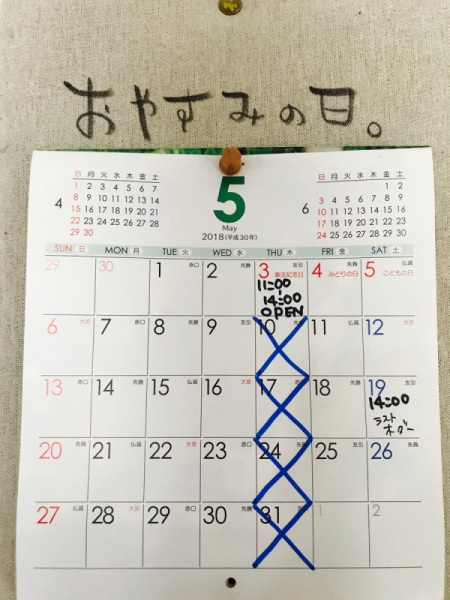 おやすみの日。
4
日 月 火 水 木 金 土
1 2 3 4 5 6 7
8 9 10 11 12 13 14
15 16 17 18 19 20 21
22 23 24 25 26 27 28
29 30
5
May
2018 (平成30年)
6
日 月 火 水 木 金 土
1 2
3 4 5 6 7 8 9
10 11 12 13 14 15 16
17 18 19 20 21 22 23
24 25 26 27 28 29 30
SUN 日 MON 月 TUE 火 WED 水 THU 木 FRI 金 SAT 土
29 30 1 赤口 2 先勝 3 友引 4 先負 5 仏滅
憲法記念日 みどりの日 こどもの日
11:00
14:00
OPEN
6 大安 7 赤口 8 先勝 9 友引 10 先負 11 仏滅 12 大安
13 赤口 14 先勝 15 仏滅 16 大安 17 赤口 18 先勝 19 友引
14:00
ラスト
オーダー
20 先負 21 仏滅 22 大安 23 赤口 24 先勝 25 友引 26 先負
27 仏滅 28 大安 29 赤口 30 先勝 31 友引 1 2